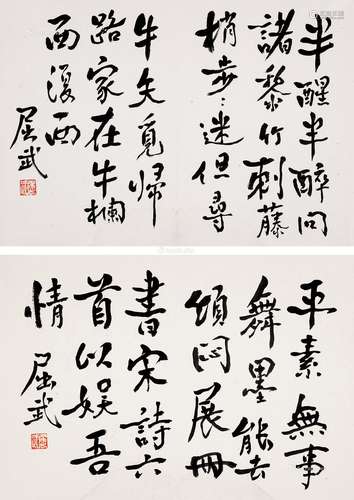 半醒半醉問
諸黎竹刺藤
梢步〻迷但尋
牛矢覓歸
路家在牛欄
西復西
屈武
平素無事
舞墨能去
煩悶展冊
書宋詩六
首以娛吾
情
屈武